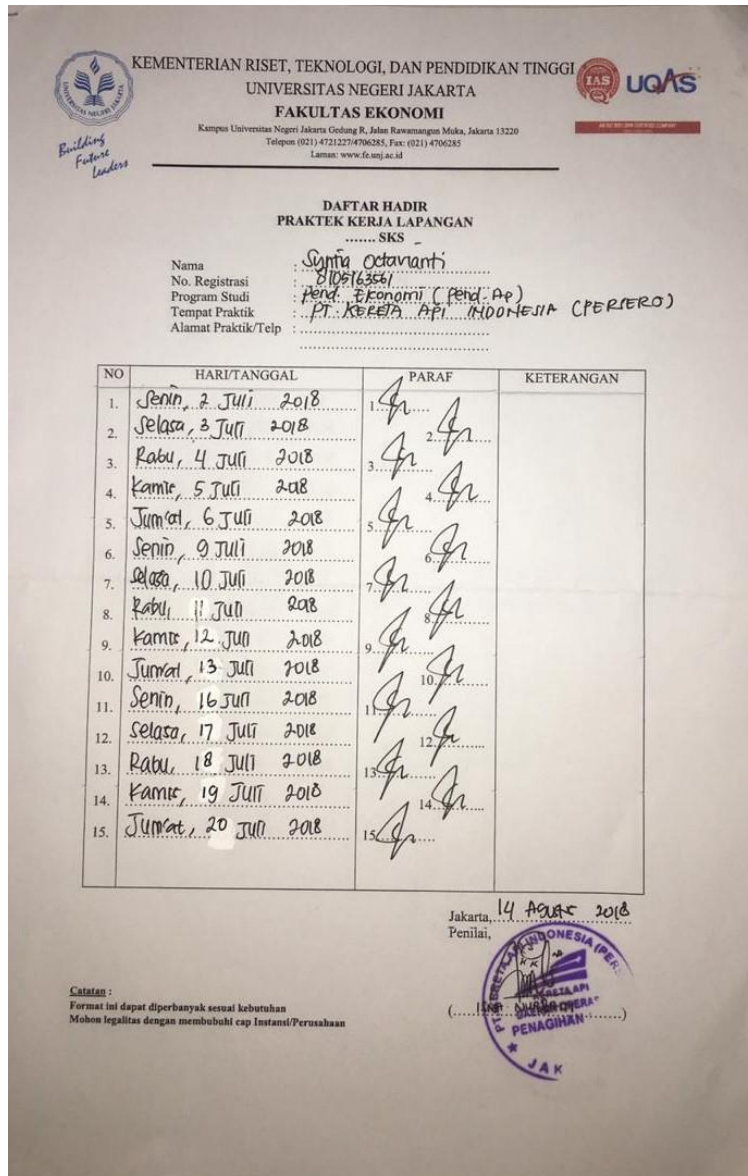 KEMENTERIAN RISET, TEKNOLOGI, DAN PENDIDIKAN TINGGI
UNIVERSITAS NEGERI JAKARTA
FAKULTAS EKONOMI
Kampus Universitas Negeri Jakarta Gedung R, Jalan Rawamangun Muka, Jakarta 13220
Telepon (021) 4721227/4706285, Fax: (021) 4706285
Laman: www.fe.unj.ac.id
UNIVERSITAS NEGERI JAKARTA
Building
Future
Leaders
IAS
UQAS
DAFTAR HADIR
PRAKTEK KERJA LAPANGAN
....... SKS
Nama : Syntia Octavianti
No. Registrasi : 8105163561
Program Studi : Pend. Ekonomi (Pend. Ap)
Tempat Praktik : PT. KERETA API INDONESIA (PERSERO)
Alamat Praktik/Telp :
NO HARI/TANGGAL PARAF KETERANGAN
1. Senin, 2 Juli 2018 1.
2. Selasa, 3 Juli 2018 2.
3. Rabu, 4 Juli 2018 3.
4. Kamis, 5 Juli 2018 4.
5. Jum'at, 6 Juli 2018 5.
6. Senin, 9 Juli 2018 6.
7. Selasa, 10 Juli 2018 7.
8. Rabu, 11 Juli 2018 8.
9. Kamis, 12 Juli 2018 9.
10. Jum'at, 13 Juli 2018 10.
11. Senin, 16 Juli 2018 11.
12. Selasa, 17 Juli 2018 12.
13. Rabu, 18 Juli 2018 13.
14. Kamis, 19 Juli 2018 14.
15. Jum'at, 20 Juli 2018 15.
Jakarta, 14 Agustus 2018
Penilai,
PENAGIHAN
JAK
Catatan :
Format ini dapat diperbanyak sesuai kebutuhan
Mohon legalitas dengan membubuhi cap Instansi/Perusahaan